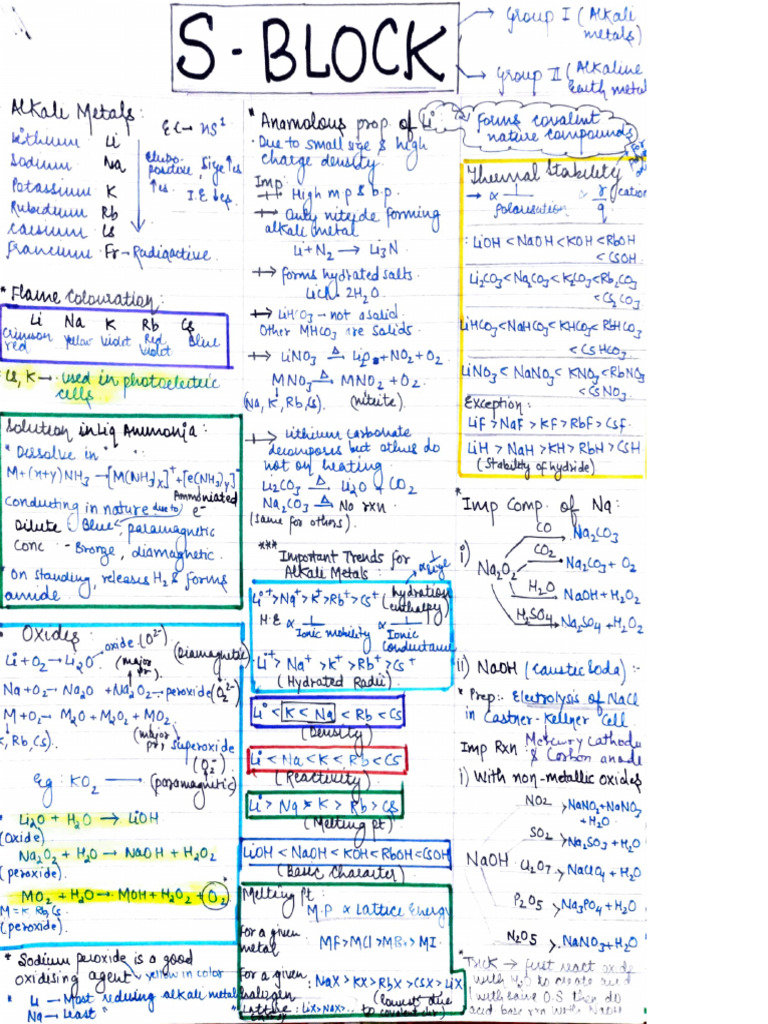 S-BLOCK
Group I (Alkali
metals)
Group II (Alkaline
Earth metal
Alkali Metals:
Lithium Li
Sodium Na
Potassium K
Rubidium Rb
Caesium Cs
Francium Fr → Radioactive
EC → ns¹
Electro-
positive ↑es
Size ↑es
I.E ↓es
* Flame Colouration:
Li Na K Rb Cs
Crimson red Yellow Violet Red Violet Blue
Cs, K → used in photoelectric
cells
Solution in Liq Ammonia:
" Dissolve in "
M+(x+y)NH₃ → [M(NH₃)x]⁺+[e(NH₃)y]⁻
Ammoniated
conducting in nature due to e⁻
Dilute Blue, paramagnetic
Conc - Bronge, diamagnetic
* On standing, releases H₂ & forms
amide.
Oxides:
oxide (O²⁻)
Li + O₂ → Li₂O (major pr.) (Diamagnetic)
Na+O₂ → Na₂O + Na₂O₂ → peroxide (O₂²⁻)
M+O₂ → M₂O + M₂O₂ + MO₂
K, Rb, Cs). (major pr) superoxide
(O₂⁻)
Eg: KO₂ → (paramagnetic)
Li₂O + H₂O → LiOH
(Oxide)
Na₂O₂ + H₂O → NaOH + H₂O₂
(peroxide).
MO₂ + H₂O → MOH + H₂O₂ + O₂
M=K, Rb, Cs.
(peroxide).
* Sodium peroxide is a good
oxidising agent yellow in color
" Li → Most reducing alkali metal
Na → Least "
* Anamolous prop. of Li
Forms covalent
nature compounds
· Due to small size & high
charge density
Imp
→ High m.p & b.p.
→ Only nitride forming
alkali metal
Li + N₂ → Li₃N
→ forms hydrated salts
LiCl · 2H₂O
→ LiHCO₃ → not a solid.
Other MHCO₃ are solids.
→ LiNO₃ Δ→ Li₂O + NO₂ + O₂
MNO₃ Δ→ MNO₂ + O₂
(Na, K, Rb, Cs). (nitrite).
→ Lithium carbonate
decomposes but others do
not on heating
Li₂CO₃ Δ→ Li₂O + CO₂
Na₂CO₃ Δ→ No rxn
(same for others).
*** Important Trends for
Alkali Metals:
Li⁺>Na⁺>K⁺>Rb⁺>Cs⁺ (hydration
enthalpy)
∝ 1/size
H.E ∝ 1/Ionic mobility ∝ 1/Ionic conductance
Li⁺> Na⁺ > K⁺ > Rb⁺ > Cs⁺
(Hydrated Radii)
Li < K < Na < Rb < Cs
(Density)
Li < Na < K < Rb < Cs
(Reactivity)
Li > Na > K > Rb > Cs
(Melting pt)
LiOH < NaOH < KOH < RbOH < CsOH
(Basic Character)
Melting pt:
M.P ∝ Lattice Energy
For a given
metal MF>MCl>MBr>MI
For a given
halogen : NaX > KX > RbX > CsX > LiX
(lowest due
to covalent char)
Lattice Energy : LiX>NaX...
Thermal Stability
→ ∝ 1/Polarisation ∝ r/q cation
: LiOH < NaOH < KOH < RbOH
< CsOH
Li₂CO₃<Na₂CO₃<K₂CO₃<Rb₂CO₃
< Cs₂CO₃
LiHCO₃<NaHCO₃<KHCO₃<RbHCO₃
< CsHCO₃
LiNO₃ < NaNO₃< KNO₃<RbNO₃
< CsNO₃
Exception:
LiF > NaF > KF > RbF > CsF
LiH > NaH > KH > RbH > CsH
(Stability of hydride)
* Imp Comp. of Na:
i) Na₂O₂
CO → Na₂CO₃
CO₂ → Na₂CO₃ + O₂
H₂O → NaOH + H₂O₂
H₂SO₄ → Na₂SO₄ + H₂O₂
ii) NaOH (caustic soda) :-
* Prep:- Electrolysis of NaCl
in Castner-Kellner Cell
Mercury cathode
& Carbon anode
Imp Rxn:
i) With non-metallic oxides
NaOH
NO₂ → NaNO₂+NaNO₃
+ H₂O
SO₂ → Na₂SO₃ + H₂O
Cl₂O₇ → NaClO₄ + H₂O
P₂O₅ → Na₃PO₄ + H₂O
N₂O₅ → NaNO₃ + H₂O
* Trick → first react oxide
with H₂O to create acid
with same O.S then do
acid base rxn with NaOH